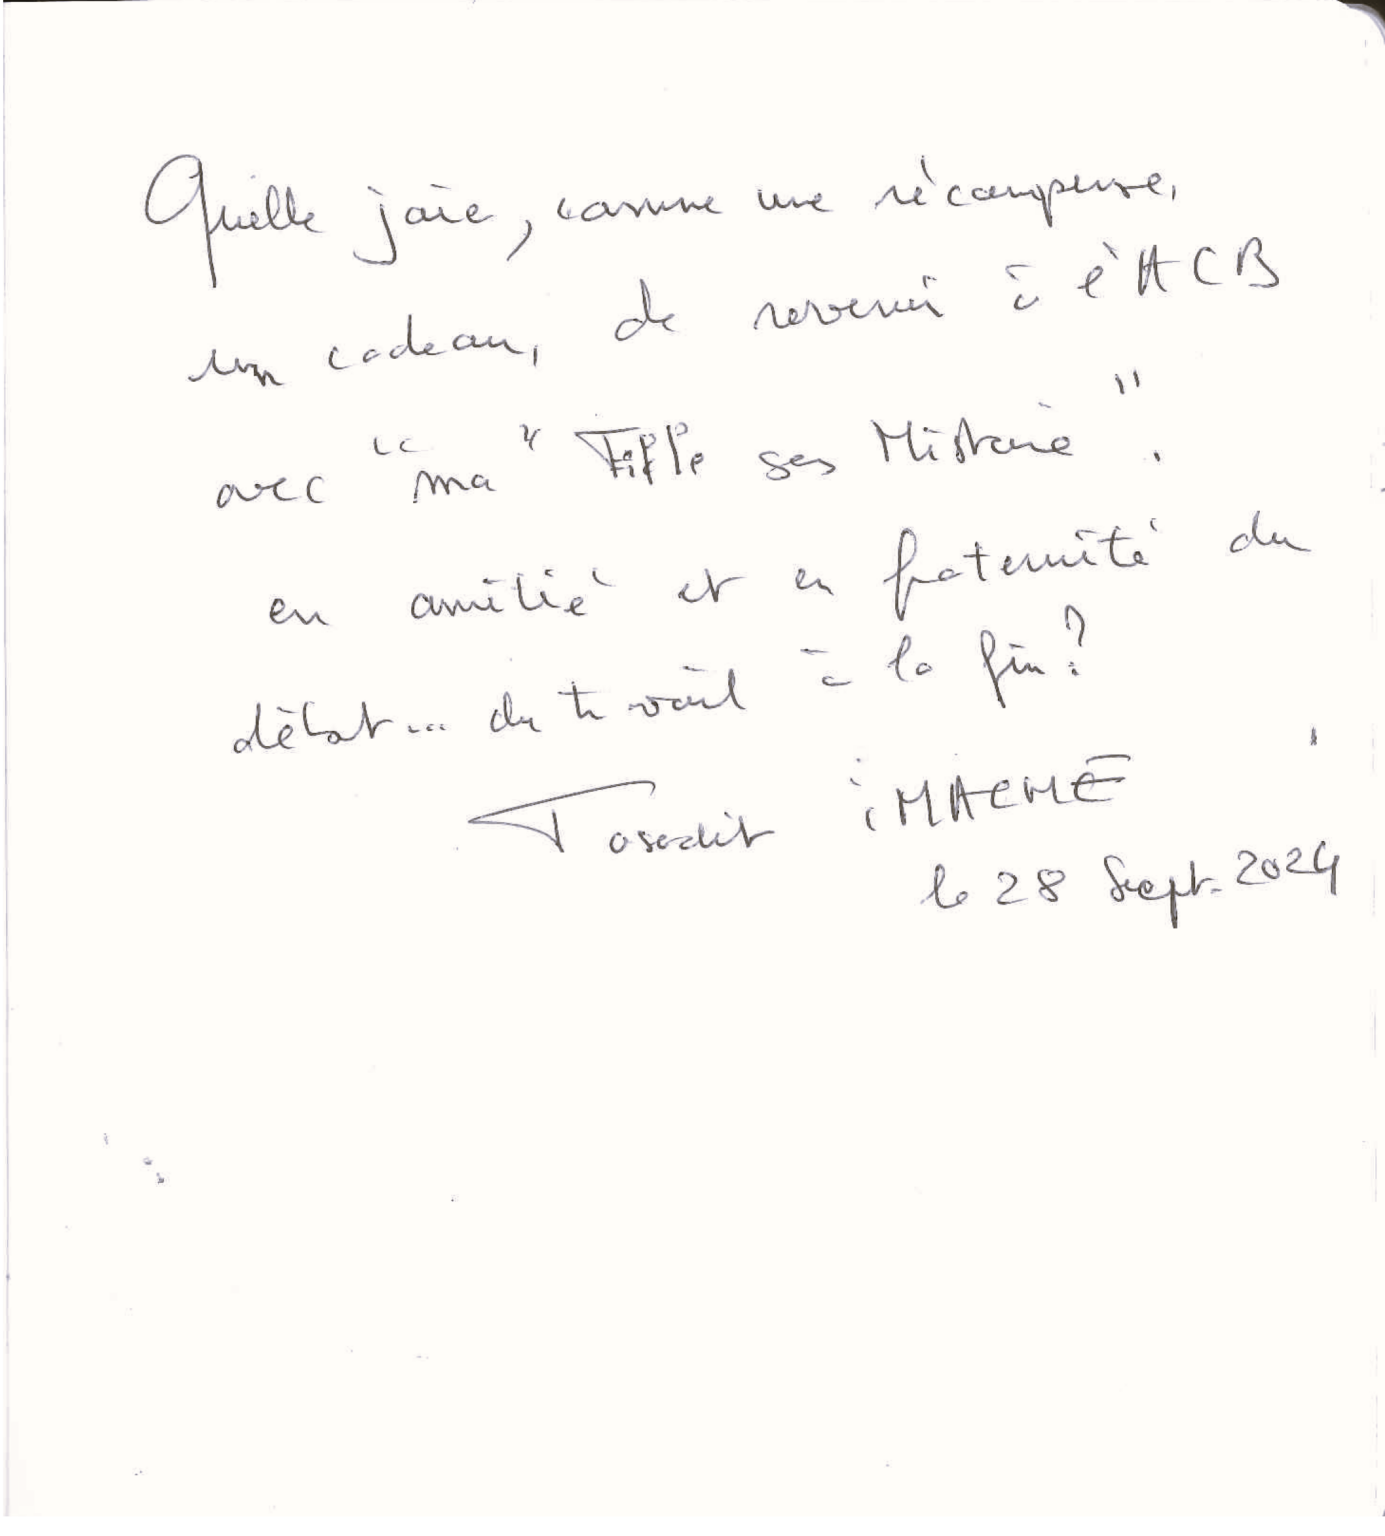 Quelle joie, comme une récompense,
un cadeau, de revenir à l'ACB
avec "ma" Fille sans Histoire".
en amitié et en fraternité du
débat... du travail à la fin?
Tassadit IMACHE
le 28 Sept. 2024